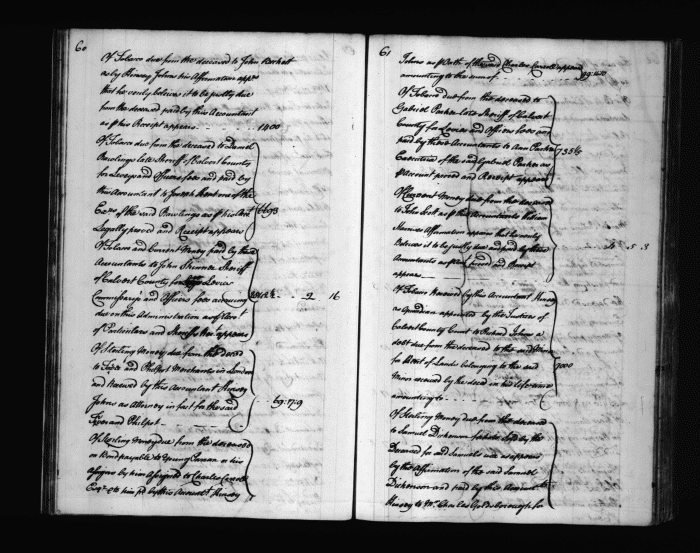 60
Of Tobacco due from the deceased to John
as by Kinsey Johns his Affirmation appears
that he verily believes it to be justly due
from the deceased paid by this Accountant
as p his Receipt appears 1400
Of Tobacco due from the deceased to Daniel
Rawlings late Sheriff of Calvert County
for Levies and Officers fees and paid by
this Accountant to Joseph
of the said Rawlings as p his Acct
Legally proved and Receipt appears 6693
Of Tobacco and Current Money paid by these
Accountants to John Skinner Sheriff
of Calvert County for Levies
Commissarys and Officers fees accruing 2 16
due on this Administration as p Acct
of Particulars and Sheriffs Rect appears
Of Sterling Money due from the deced
to and Philpot Merchants in London
and received by this Accountant Kinsey
Johns as Attorney in fact for the said 69:17:9
and Philpot
Of Sterling Money due from the deceased
on Bond payable to Young Parran or his
assigns by him Assigned to Charles Carroll
Esqr to him pd by this Accountt Kinsey
61
Johns as p Oath of the said Charles Carroll appears
amounting to the sum of
Of Tobacco due from the deceased to
Gabriel Parker late Sheriff of Calvert
County for Levies and Officers fees and
paid by these Accountants to Ann Parker
Executrix of the said Gabriel Parker as
p Account proved and Receipt appears
Of Current Money due from the deceased
to John as p the Accountants
Affirmation appears that he verily
believes it to be justly due and paid by these 5 3
Accountants as p proved and Receipt
appears
Of Tobacco received by this Accountant Kinsey
as Guardian appointed by the Justices of
Calvert County Court to Richard Johns a
debt due from the deceased to the said Minor
for Rent of Lands belonging to the said 7000
Minor received by the deced in his lifetime
amounting to
Of Sterling Money due from the deceased
to Samuel Dickenson by the
Deceased for said Samuels use as appears
by the Affirmation of the said Samuel
Dickenson and paid by this Accountt
Kinsey to Mr Charles Goldsborough for